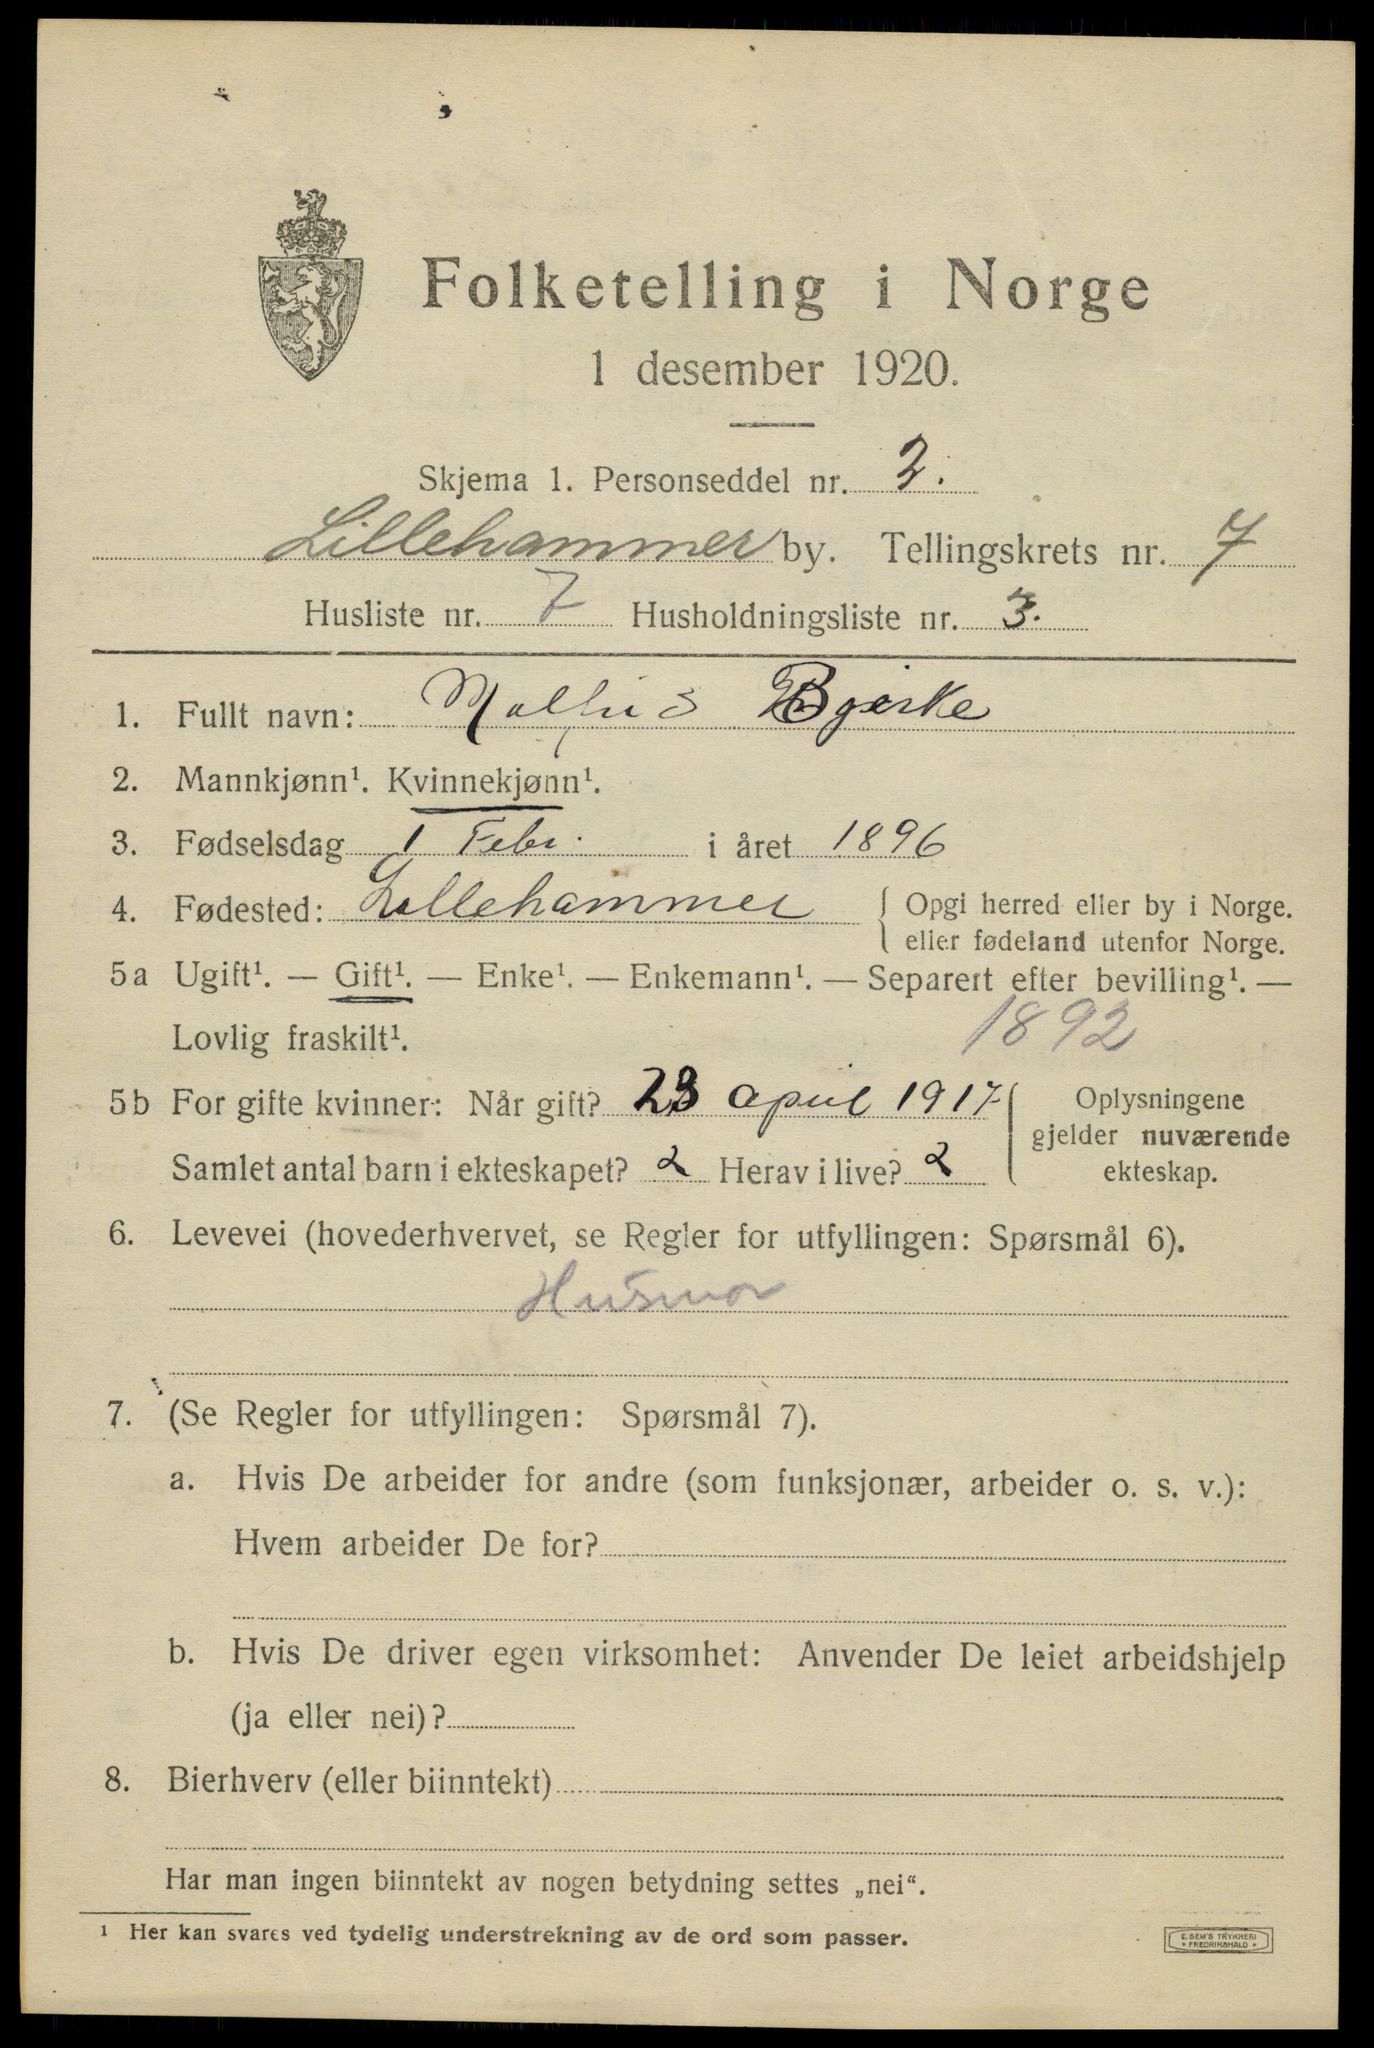 Folketelling i Norge
1 desember 1920.
Skjema 1. Personseddel nr. 2.
Lillehammer by. Tellingskrets nr. 7
Husliste nr. 7 Husholdningsliste nr. 3.
1. Fullt navn: Bjørke
2. Mannkjønn¹. Kvinnekjønn¹.
3. Fødselsdag 1 Febr. i året 1896
4. Fødested: Lillehammer { Opgi herred eller by i Norge.
eller fødeland utenfor Norge.
5a Ugift¹. — Gift¹. — Enke¹. — Enkemann¹. — Separert efter bevilling¹. —
Lovlig fraskilt¹. 1892
5b For gifte kvinner: Når gift? 23 april 1917 { Oplysningene
gjelder nuværende
Samlet antal barn i ekteskapet? 2 Herav i live? 2 ekteskap.
6. Levevei (hovederhvervet, se Regler for utfyllingen: Spørsmål 6).
Husmor
7. (Se Regler for utfyllingen: Spørsmål 7).
a. Hvis De arbeider for andre (som funksjonær, arbeider o. s. v.):
Hvem arbeider De for?
b. Hvis De driver egen virksomhet: Anvender De leiet arbeidshjelp
(ja eller nei)?
8. Bierhverv (eller biinntekt)
Har man ingen biinntekt av nogen betydning settes „nei“.
¹ Her kan svares ved tydelig understrekning av de ord som passer.
E. SEM'S TRYKKERI
* FREDRIKSHALD *